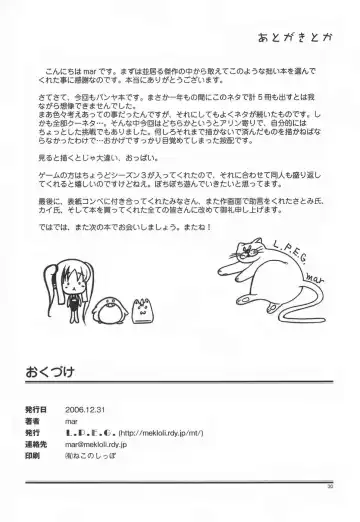 あとがきとか
こんにちは mar です。まずは並居る傑作の中から敢えてこのような拙い本を選んで
くれた事に感謝なのです。本当にありがとうございます。
さてさて、今回もパンヤ本です。まさか一年もの間にこのネタで計５冊も出すとは我
ながら想像できませんでした。
まあ色々考えあっての事だったんですが、それにしてもよくネタが続いたものです。し
かも全部クーネタ…。そんな中今回はどちらかというとアリン寄りで、自分的には
ちょっとした挑戦でもありました。何しろそれまで描かないで済んだものを描かねばな
らなかったわけで…おかげですっかり目覚めてしまった按配です。
見ると描くとじゃ大違い、おっぱい。
ゲームの方はちょうどシーズン３が入ってくれたので、それに合わせて同人も盛り返し
てくれると嬉しいのですけどねえ。ぼちぼち遊んでいきたいと思ってます。
最後に、表紙コンペに付き合ってくれたみなさん、また作画面で助言をくれたさとみ氏、
カイ氏、そして本を買ってくれた全ての皆さんに改めて御礼申し上げます。
ではでは、また次の本でお会いしましょう。またね！
L.P.E.G.
mar
おくづけ
発行日 2006.12.31
著者 mar
発行 L.P.E.G. (http://mekloli.rdy.jp/mt/)
連絡先 mar@mekloli.rdy.jp
印刷 ㈲ねこのしっぽ
30